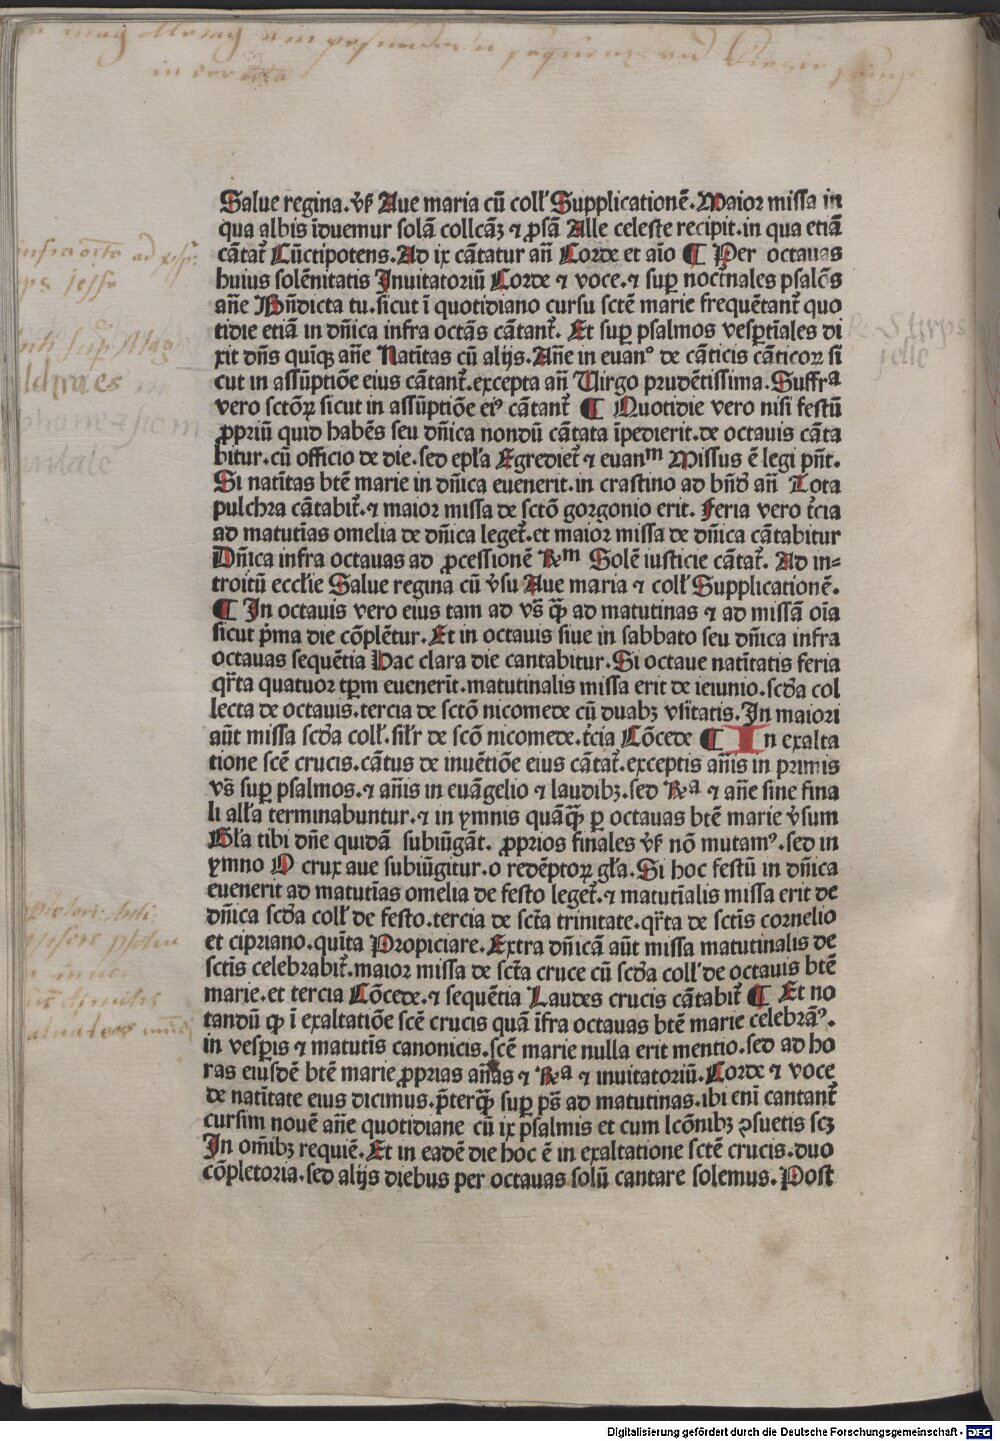 in devota
Salue regina.v̄ß Aue maria cū coll̄ Supplicationē.Maior missa in
qua albis īduemur solā collcāꝫ ⁊ ꝓsā Alle celeste recipit.in qua etiā
cātat᷑ Cūctipotens.Ad ix cātatur añ Corde et aīo ¶ Per octauas
huius solēnitatis Inuitatoriū Corde ⁊ voce.⁊ sup̄ noct̄nales psalōs
añe Bñdicta tu.sicut ī quotidiano cursu sctē marie frequētant᷑ quo
tidie etiā in dñica infra octās cātant᷑. Et sup̄ psalmos vesp̄tīales di
xit dñs quīqꝫ añe Natītas cū alijs.Añe in euanᵒ de cāticis cāticoꝝ si
cut in assūptiōe eius cātant᷑.excepta añ Uirgo prudētissima.Suffrᵃ
vero sctōꝝ sicut in assūptiōe eiꝰ cātant᷑ ¶ Quotidie vero nisi festū
ꝓpriū quid habēs seu dñica nondū cātata īpedierit.de octauis cāta
bitur.cū officio de die.sed epl̄a Egrediet᷑ ⁊ euanᵐ Missus ē legi pñt.
Si natītas btē marie in dñica euenerit.in crastino ad bñd̄ añ Tota
pulchra cātabit᷑.⁊ maior missa de sctō gorgonio erit. Feria vero t̄cia
ad matutīas omelia de dñica leget᷑.et maior missa de dñica cātabitur
Dñica infra octauas ad ꝓcessionē ℞ᵐ Solē iusticie cātat᷑. Ad in=
troitū eccl̄ie Salue regina cū v̄su Aue maria ⁊ coll̄ Supplicationē.
¶ In octauis vero eius tam ad vs̄ qꝫ̄ ad matutinas ⁊ ad missā oīa
sicut p̄ma die cōplētur.Et in octauis siue in sabbato seu dñica infra
octauas sequētia Hac clara die cantabitur.Si octaue natītatis feria
qr̄ta quatuor tp̄m euenerīt.matutinalis missa erit de ieiunio.scd̄a col
lecta de octauis.tercia de sctō nicomede cū duabꝫ vsītatis.In maiori
aūt missa scd̄a coll̄.sil̄r de scō nicomede.t̄cia Cōcede ¶ In exalta
tione scē crucis.cātus de inuētiōe eius cātat᷑.exceptis añis in primis
vs̄ sup̄ psalmos.⁊ añis in euāgelio ⁊ laudibꝫ.sed ℞ᵃ ⁊ añe sine fina
li all̄a terminabuntur.⁊ in ymnis quāqꝫ̄ ꝑ octauas btē marie v̄sum
Gl̄a tibi dñe quidā subiūgāt. ꝓprios finales v̄ß nō mutamꝰ.sed in
ymno O crux aue subiūgitur.o redēptoꝝ gl̄a.Si hoc festū in dñica
euenerit ad matutīas omelia de festo leget᷑.⁊ matutīalis missa erit de
dñica scd̄a coll̄ de festo.tercia de sct̄a trinitate.qr̄ta de sctīs cornelio
et cipriano.quīta Propiciare.Extra dñicā aūt missa matutinalis de
sctīs celebrabit᷑.maior missa de sct̄a cruce cū scd̄a coll̄ de octauis btē
marie.et tercia Cōcede.⁊ sequētia Laudes crucis cātabit᷑ ¶ Et no
tandū ꝙ ī exaltatiōe scē crucis quā īfra octauas btē marie celebrāꝰ.
in vesp̄is ⁊ matutīs canonicis.scē marie nulla erit mentio.sed ad ho
ras eiusdē btē marie ꝓprias añas ⁊ ℞ᵃ ⁊ inuitatoriū.Corde ⁊ voce
de natītate eius dicimus.p̄terqꝫ̄ sup̄ ps̄ ad matutinas.ibi enī cantant᷑
cursim nouē añe quotidiane cū ix psalmis et cum lcōnibꝫ ꝯsuetis scꝫ
In om̄ibꝫ requiē.Et in eadē die hoc ē in exaltatione sctē crucis.duo
cōpletoria.sed alijs diebus per octauas solū cantare solemus.Post
R Stirps
jesse
Digitalisierung gefördert durch die Deutsche Forschungsgemeinschaft - DFG